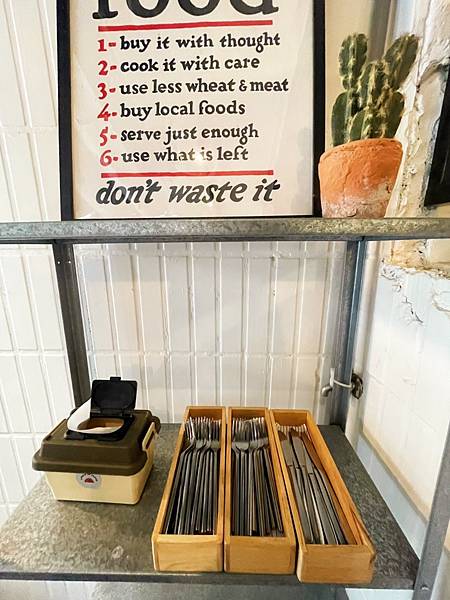 food
1- buy it with thought
2- cook it with care
3- use less wheat & meat
4- buy local foods
5- serve just enough
6- use what is left
don't waste it